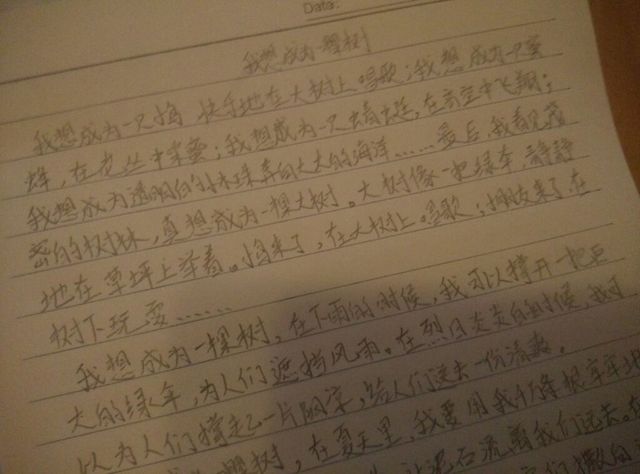 Data:
我想成为一棵树
我想成为一只 快乐地在大树上唱歌;我想成为一只蜜
蜂,在花丛中采蜜;我想成为一只蜻蜓,在高空中飞翔;
我想成为透明的水珠奔向大大的海洋……最后,我看见茂
密的树林,真想成为一棵大树。大树像一把绿伞,静静
地在草坪上举着。 来了,在大树上唱歌; 来了,在
树下玩耍……
我想成为一棵树,在下雨的时候,我可以撑开一把巨
大的绿伞,为人们遮挡风雨。在烈日炎炎的时候,我可
以为人们撑起一片阴凉,给人们送去一份清爽。
树,在夏天里,我要用我 根牢牢地
泥石流离我们远去。在